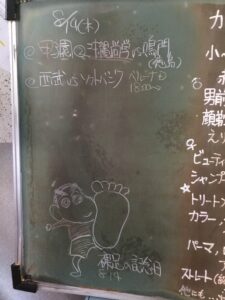 8/14(木)
甲子園② 沖縄尚学 vs 鳴門
(徳島)
西武 vs ソフトバンク ベルーナD
18:00〜
裸足の記念日
8.14
カ
小
男前
顔剃
えり
♀
ビューティ
シャンプ
★
トリート
カラー
パーマ
ストレート
他にも